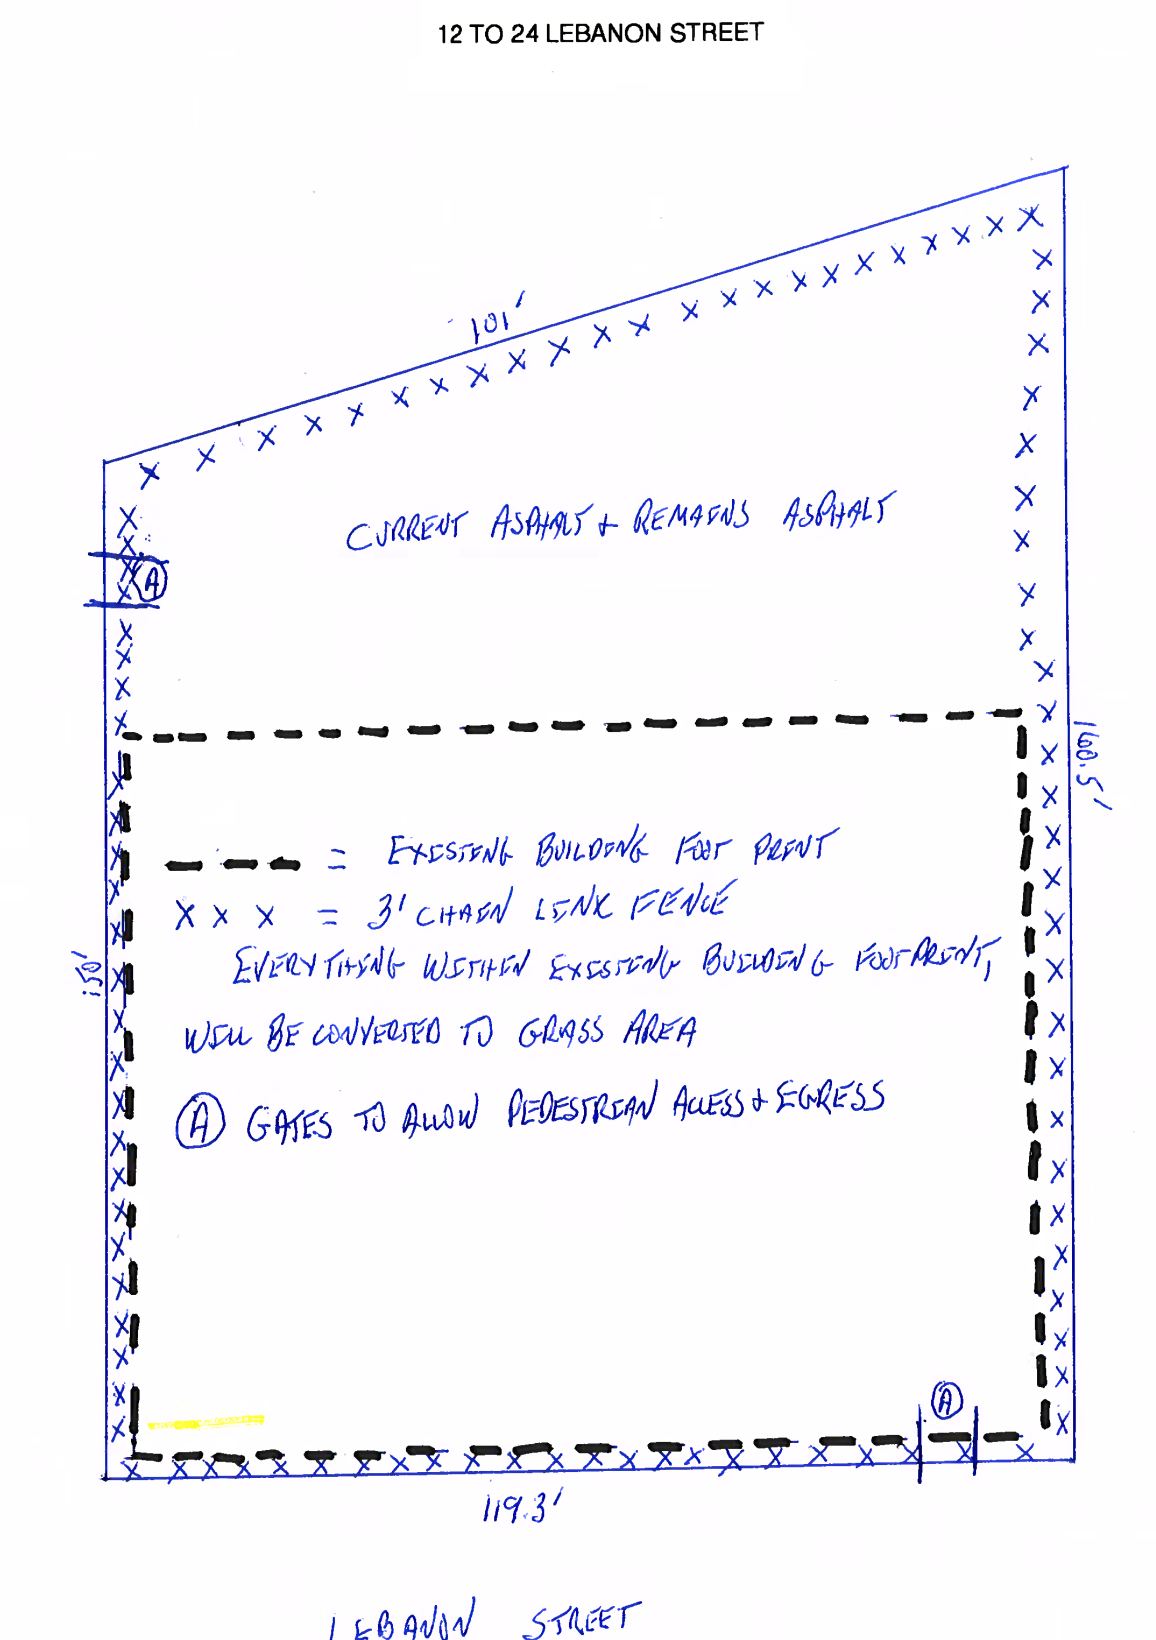 12 TO 24 LEBANON STREET
101'
CURRENT ASPHALT & REMAINS ASPHALT
A
160.5'
= EXISTING BUILDING FOOT PRINT
X X X = 3' CHAIN LINK FENCE
EVERYTHING WITHIN EXISTING BUILDING FOOTPRINT,
150'
WILL BE CONVERTED TO GRASS AREA
A GATES TO ALLOW PEDESTRIAN ACCESS & EGRESS
A
119.3'
LEBANON STREET